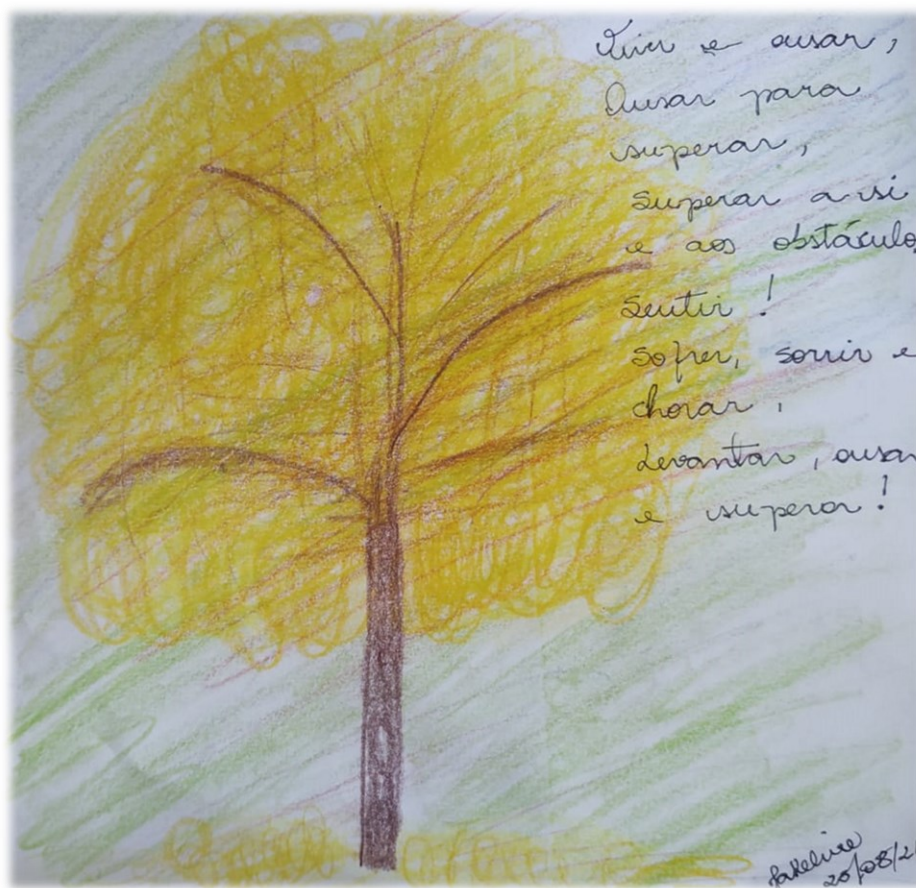 Viver e ousar,
Ousar para
superar,
superar a si
e aos obstáculos
sentir !
Sofrer, sorrir e
chorar,
Levantar, ousar
e superar!
Jakeline
20/08/2